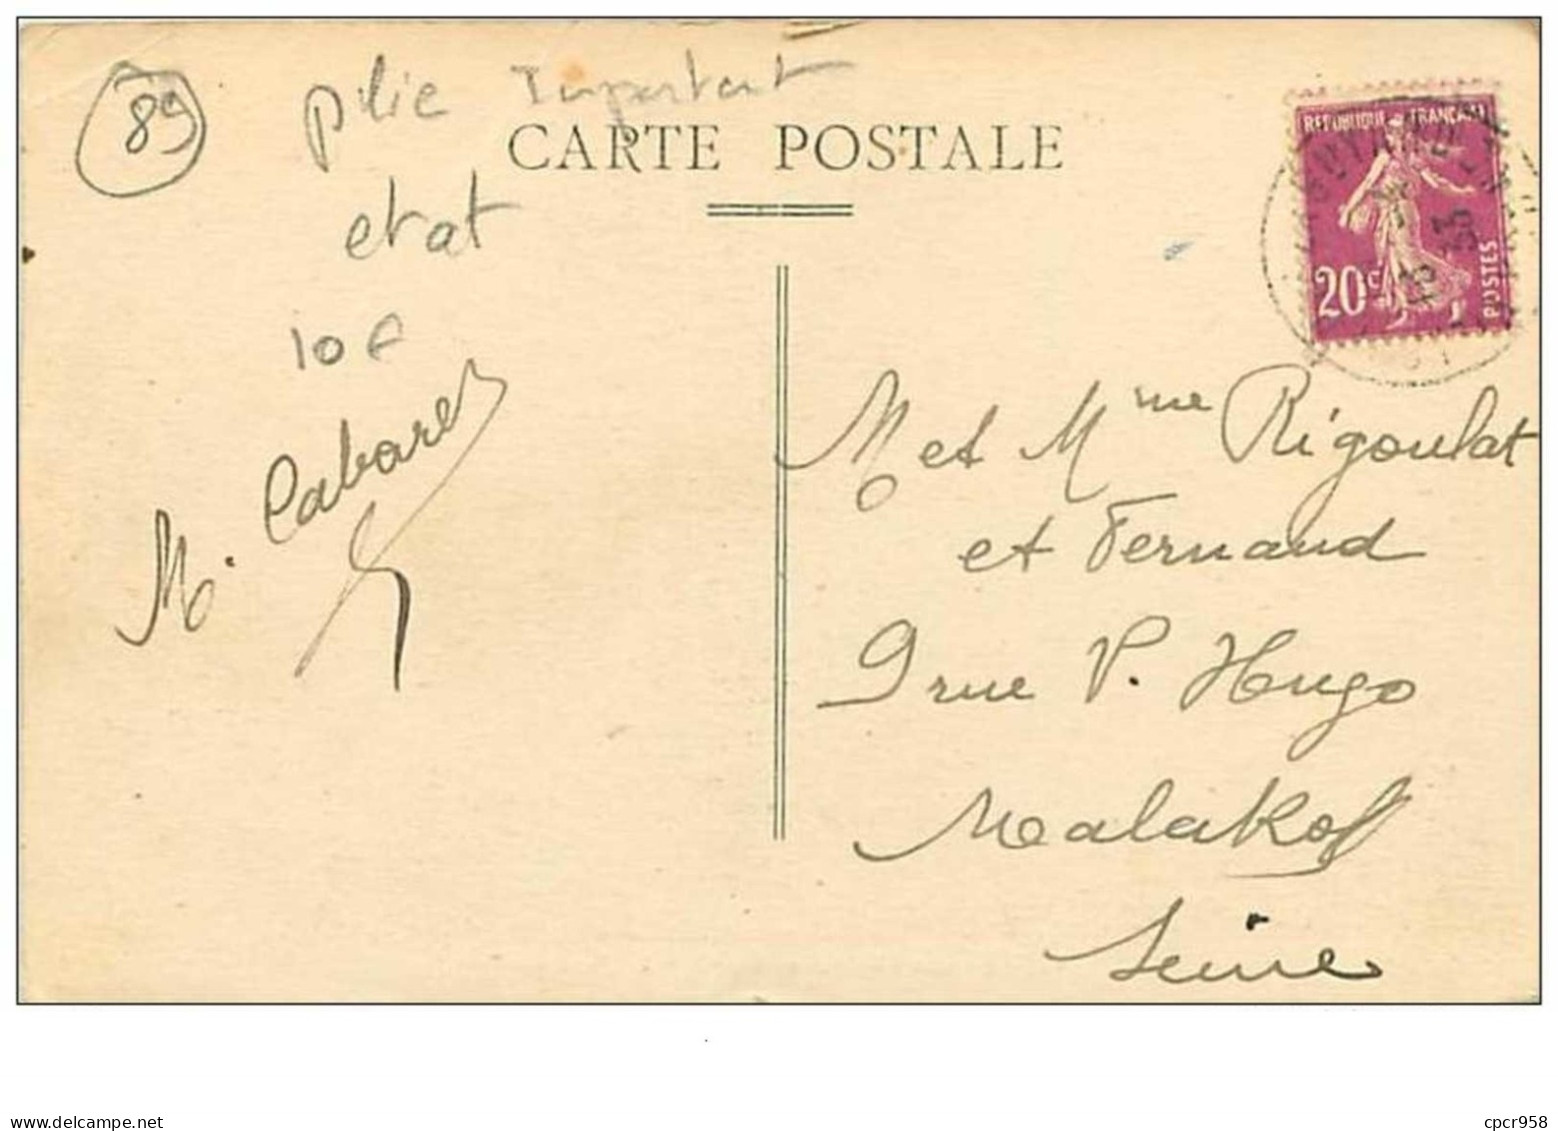 89
plie Important
etat
10€
CARTE POSTALE
REPUBLIQUE FRANÇAISE
20c
POSTES
13
33
M. Cabaret
M et Mme Rigoulat
et Fernand
9 rue V. Hugo
Malakoff
Seine
www.delcampe.net
cpcr958